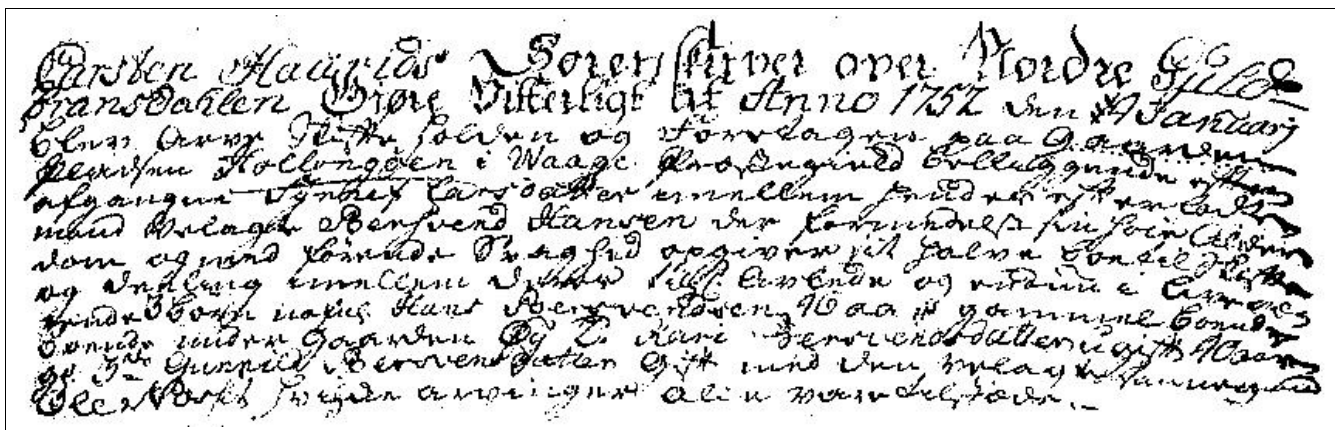 Carsten Haarids Sorenskriver over Nordre Gulds
bransdahlen Giøre Vitterligt at Anno 1752 den 14 Januarj
blev Arve Skifte holden og Foretagen paa Gaarden
pladsen Kollengøen i Waage Præstegield beliggende efter
afgangne Synnev Larsdatter imellem hendes efterladte
mand Velagte Bersvend Hansen der formedelst sin høie Alder
dom og medførende Svaghed opgiver sit halve boe til Skifte
og deeling imellem deres tilsl. Avlende og endnu i live væ
rende 3 børn nafnl. Hans Bersvendsen 46 aar gammel boende
boende under gaarden Øy 2. Kari Bersvensdatter ugift 40 aar
og 3de Gunnild Bersvensdatter Gift med den velagte
Ole hvilke arvinger alle var tilstæde.